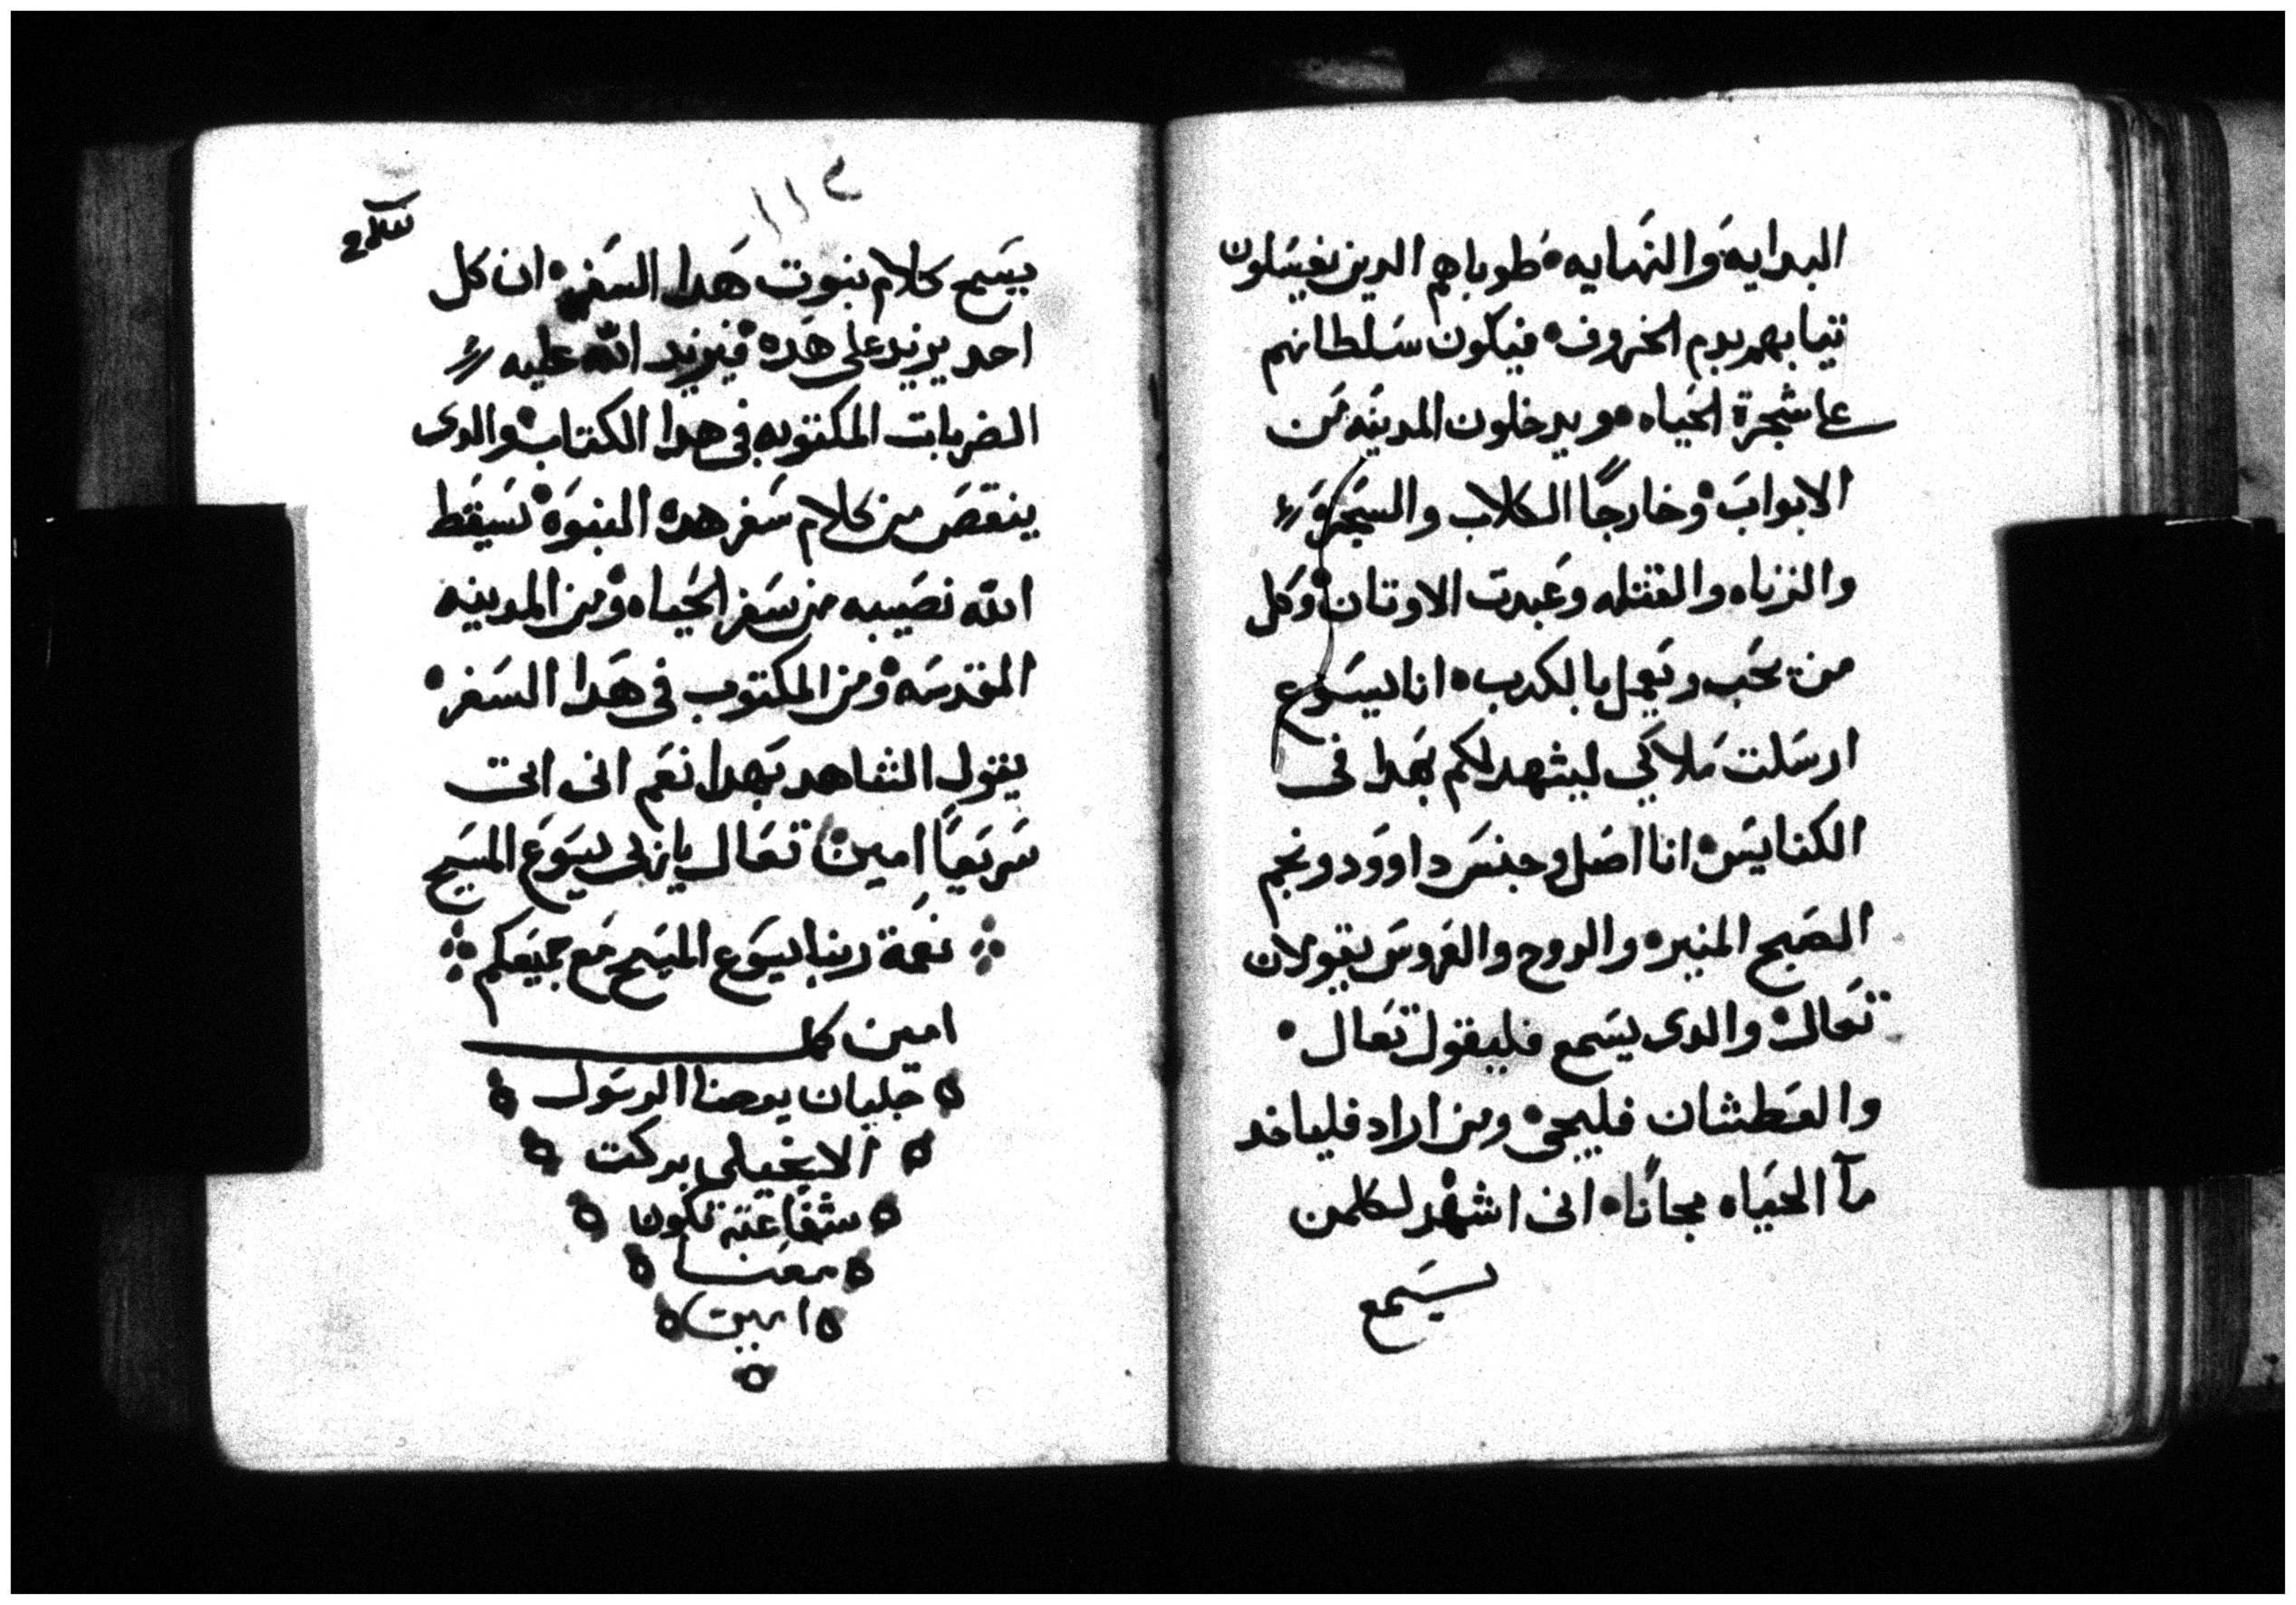 البدايه والنهايه طوباهم الدين يغسلون
تيابهم بدم الخروف فيكون سلطانهم
على شجرة الحياه ويدخلون المدينه من
الابواب وخارجًا الكلاب والسحرة
والزناه والقتله وعبدت الاوتان وكل
من يحب ويعمل بالكدب انا يسوع
ارسلت ملاكي ليشهد لكم بهدا فى
الكنايس انا اصل وجنس داوود ونجم
الصبح المنير والروح والعروس يقولان
تعال والدى يسمع فليقول تعال
والعطشان فليجى ومن اراد فلياخد
مآ الحياه مجانًا انى اشهد لكلمن
يسمع
١١٤
يسمع كلام نبوت هدا السفر ان كل
احد يزيد على هده فيزيد الله عليه
الضربات المكتوبه فى هدا الكتاب والدى
ينقص من كلام سفر هده النبوه يسقط
الله نصيبه من سفر الحياه ومن المدينه
المقدسه ومن المكتوب فى هدا السفر
يقول الشاهد بهدا نعم انى اتى
سريعًا امين تعال يا ربى يسوع المسيح
نعمة ربنا يسوع المسيح مع جميعكم
امين كمل
جليان يوحنا الرسول
الانجيلى بركت
شفاعته تكون
معنا
امين